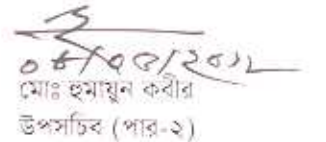 ০৮/০৫/২০১২
মোঃ হুমায়ুন কবীর
উপসচিব (পার-২)